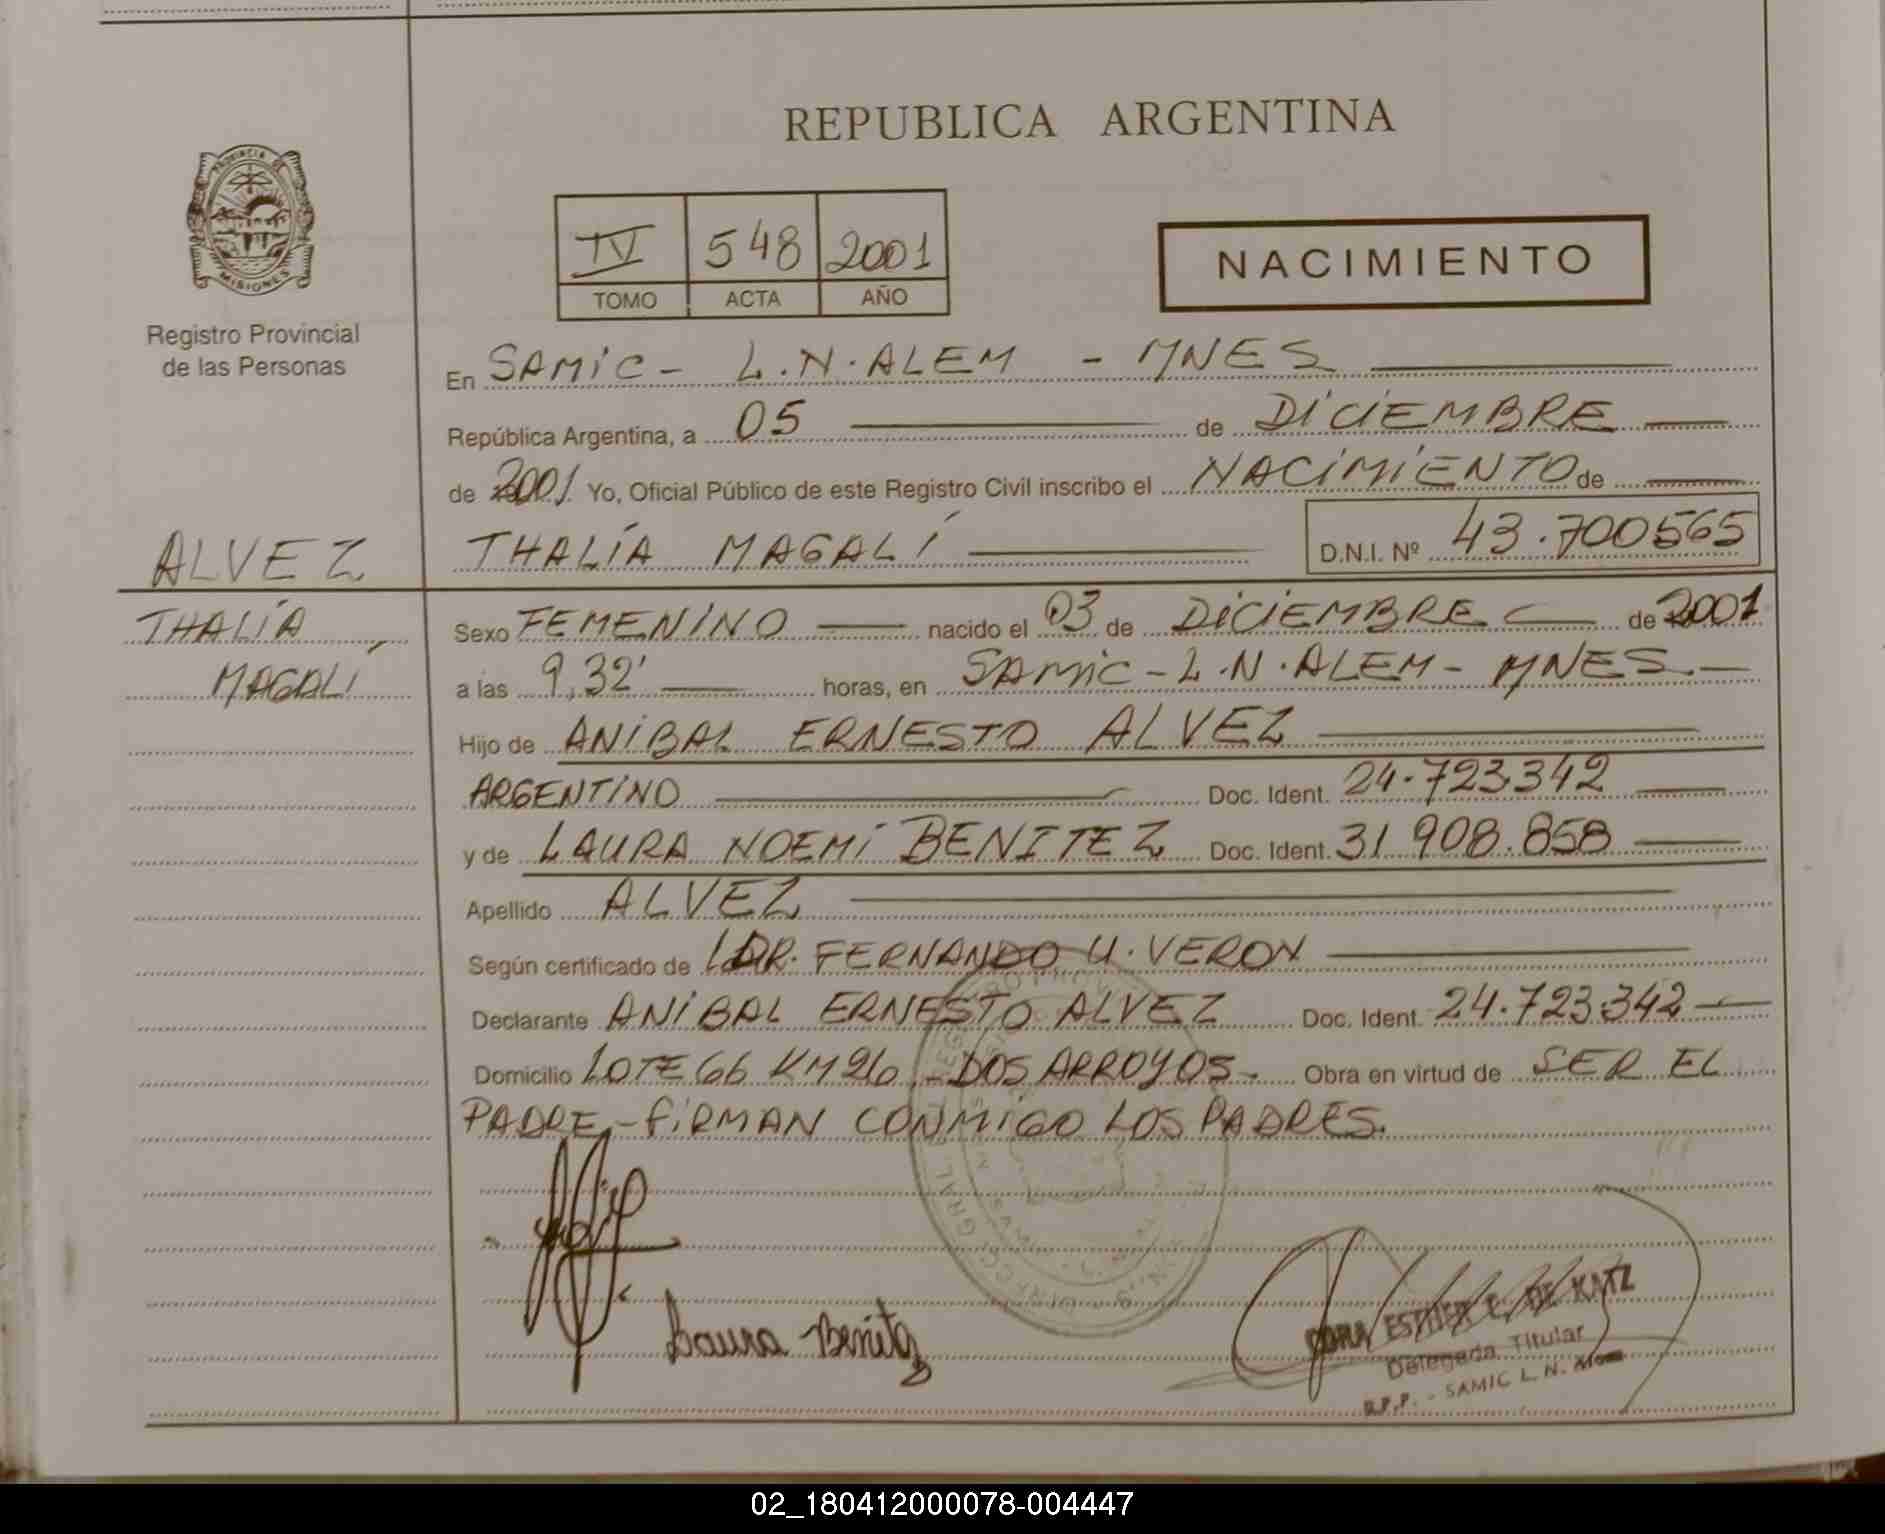 REPUBLICA ARGENTINA
PROVINCIA DE
MISIONES
Registro Provincial
de las Personas
IV 548 2001
TOMO ACTA AÑO
NACIMIENTO
En SAMIC - L.N. ALEM - MNES
República Argentina, a 05 de DICIEMBRE
de 2001 Yo, Oficial Público de este Registro Civil inscribo el NACIMIENTO de
THALÍA MAGALÍ D.N.I. Nº 43.700565
ALVEZ
THALÍA
MAGALÍ
Sexo FEMENINO nacido el 03 de DICIEMBRE de 2001
a las 9,32' horas, en SAMIC - L.N. ALEM - MNES.
Hijo de ANIBAL ERNESTO ALVEZ
ARGENTINO Doc. Ident. 24.723.342
y de LAURA NOEMÍ BENITEZ Doc. Ident. 31 908.858
Apellido ALVEZ
Según certificado de DR. FERNANDO U. VERON
Declarante ANIBAL ERNESTO ALVEZ Doc. Ident. 24.723.342
Domicilio LOTE 66 KM 26 - DOS ARROYOS. Obra en virtud de SER EL
PADRE - FIRMAN CONMIGO LOS PADRES.
Laura Benitez
ESTHER C. DE KATZ
Delegada Titular
R.P.P. - SAMIC L. N. Alem
02_180412000078-004447